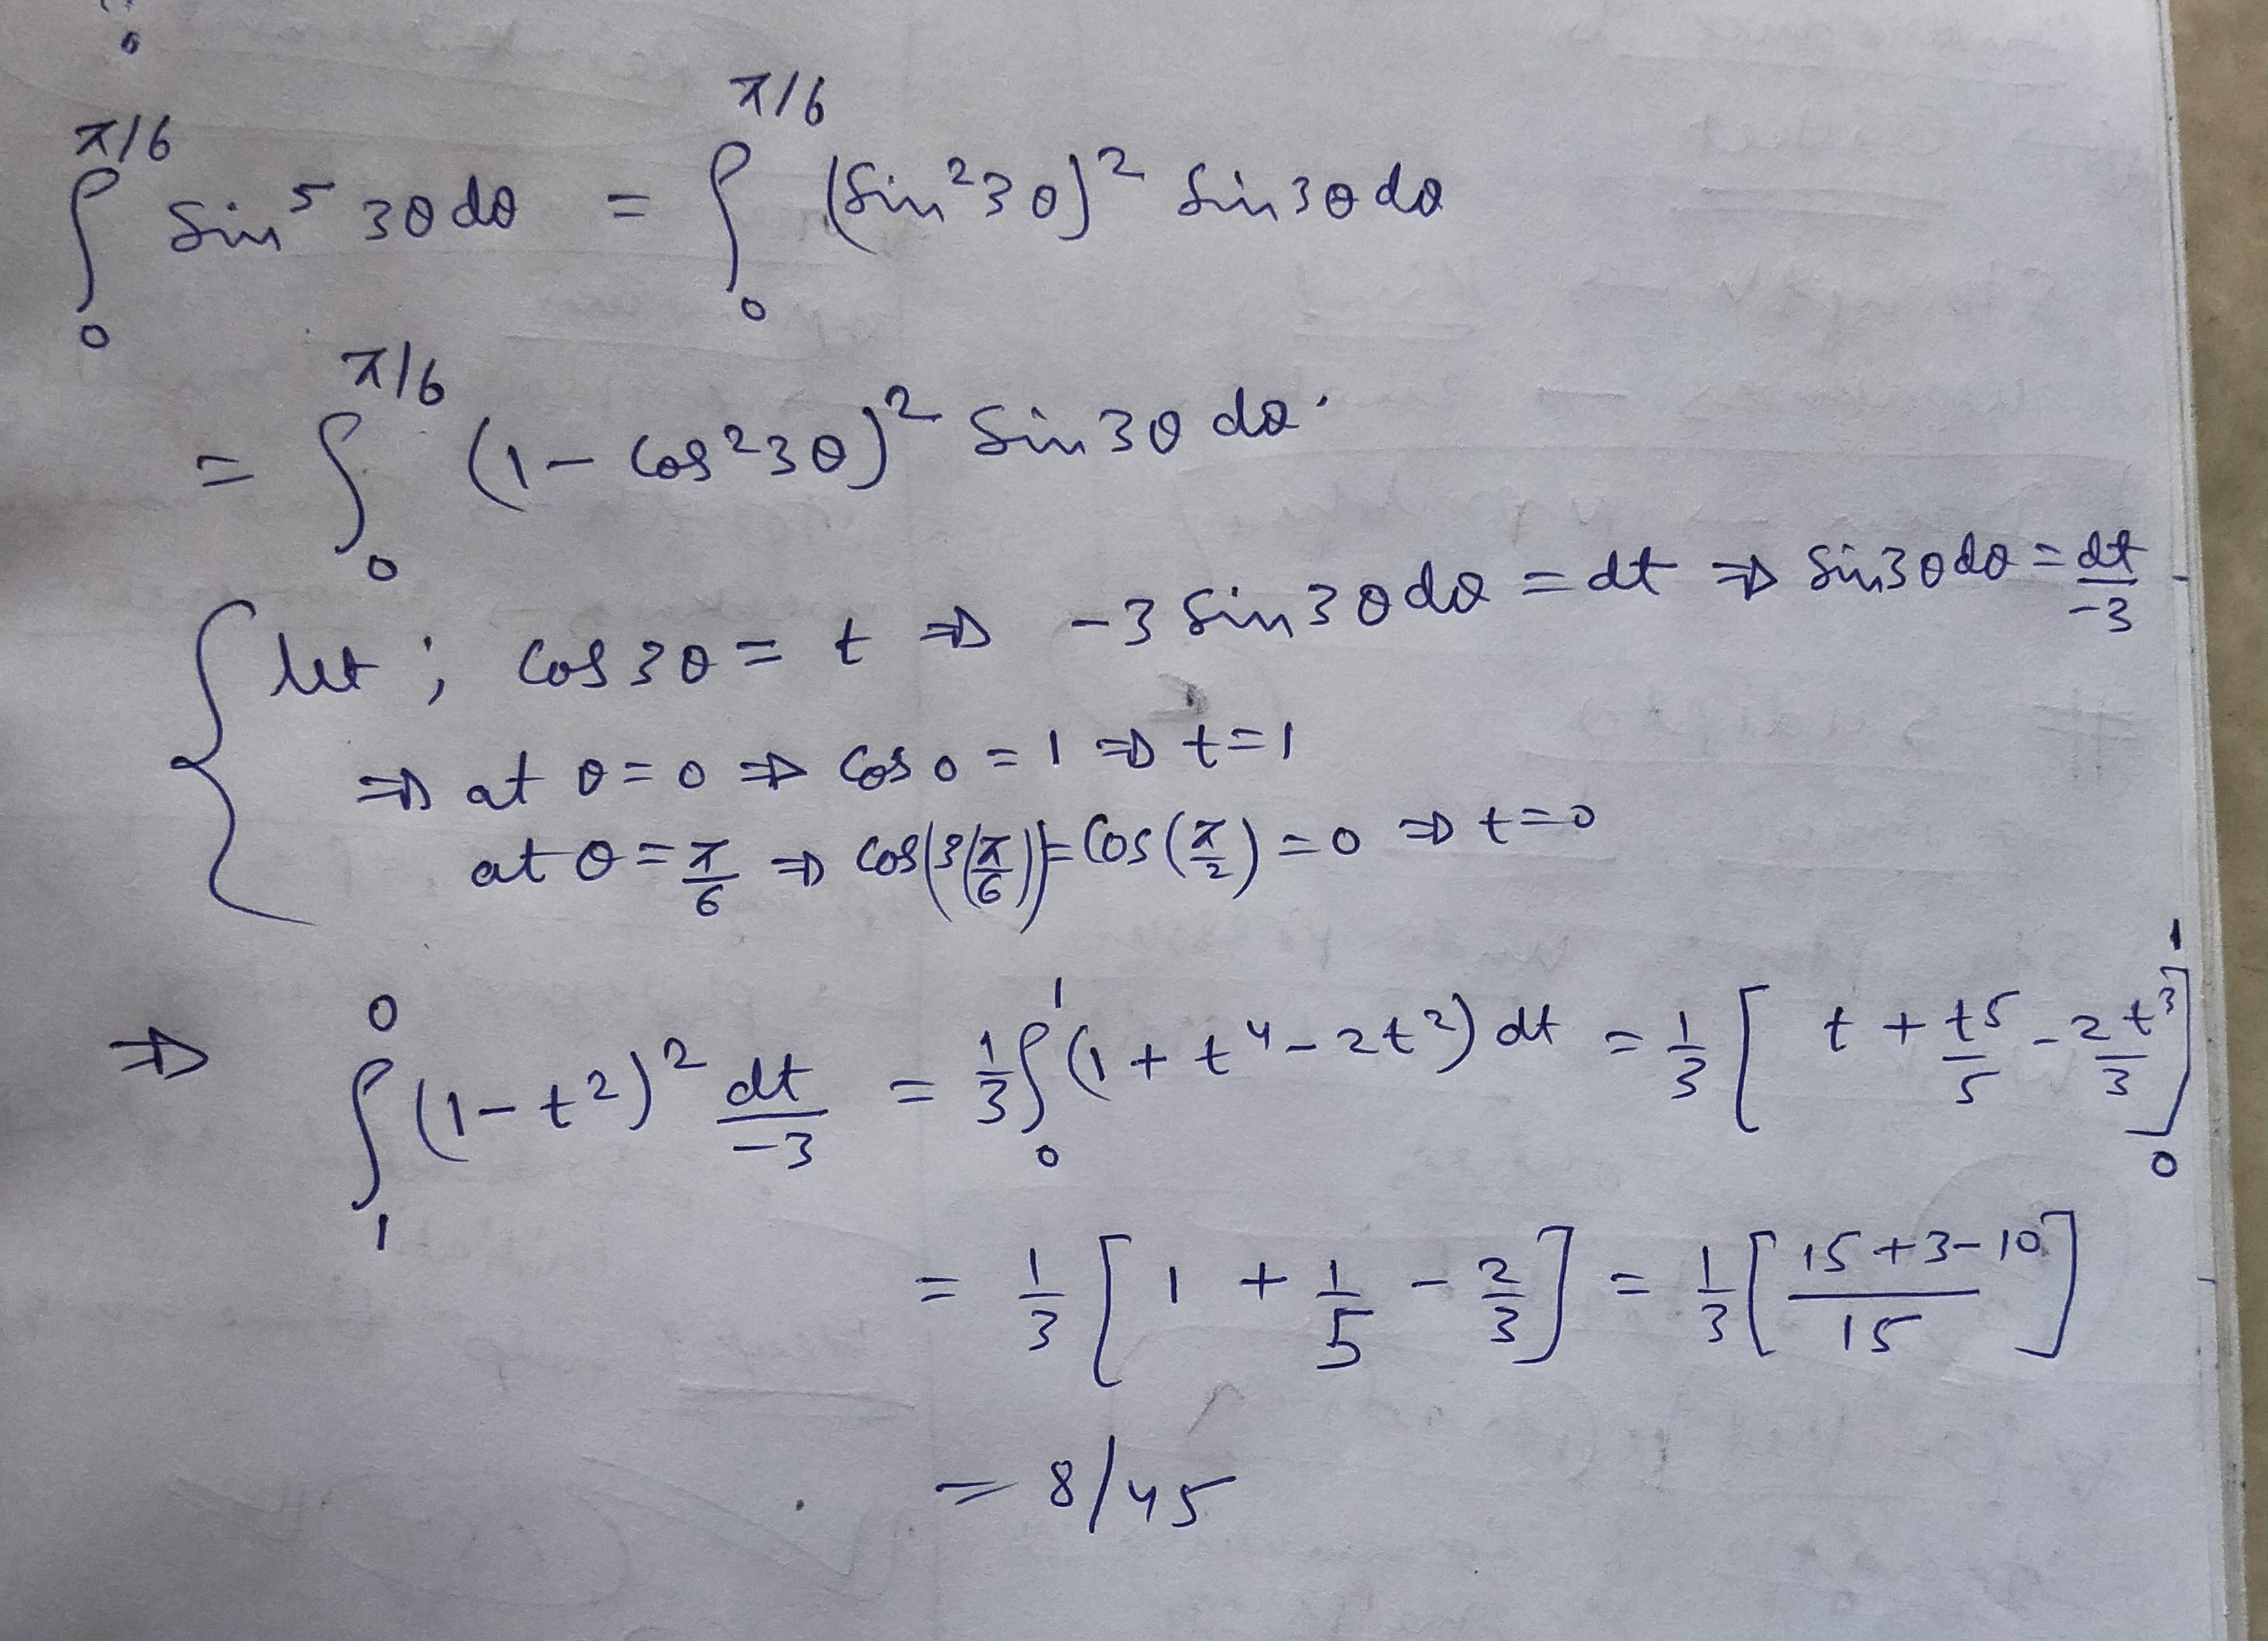 ∫₀^{π/6} Sin⁵ 3θ dθ = ∫₀^{π/6} (Sin² 3θ)² Sin 3θ dθ
= ∫₀^{π/6} (1 - Cos² 3θ)² Sin 3θ dθ.
let ; Cos 3θ = t ⇒ -3 Sin 3θ dθ = dt ⇒ Sin 3θ dθ = dt/-3
⇒ at θ = 0 ⇒ Cos 0 = 1 ⇒ t = 1
at θ = π/6 ⇒ Cos(3(π/6)) = Cos(π/2) = 0 ⇒ t = 0
⇒ ∫₁⁰ (1 - t²)² dt/-3 = 1/3 ∫₀¹ (1 + t⁴ - 2t²) dt = 1/3 [t + t⁵/5 - 2t³/3]₀¹
= 1/3 [1 + 1/5 - 2/3] = 1/3 [(15 + 3 - 10)/15]
= 8/45